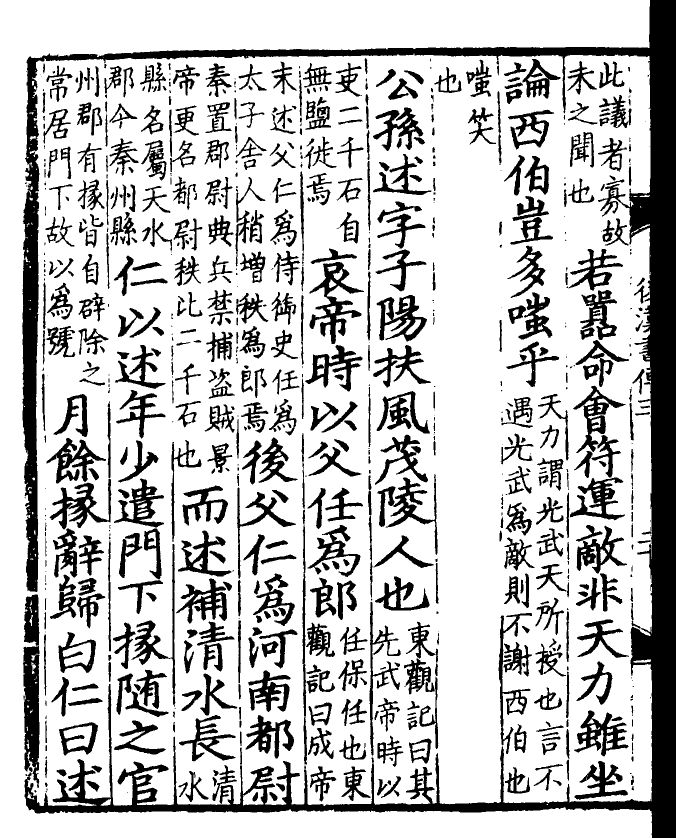 此議者寡故
未之聞也
若囂命會符運敵非天力雖坐
論西伯豈多嗤乎
天力謂光武天所授也言不
遇光武爲敵則不謝西伯也
嗤笑
也
公孫述字子陽扶風茂陵人也
東觀記曰其
先武帝時以
吏二千石自
無鹽徙焉
哀帝時以父任爲郎
任保任也東
觀記曰成帝
末述父仁爲侍御史任爲
太子舍人稍增秩爲郎焉
後父仁爲河南都尉
秦置郡尉典兵禁捕盗賊景
帝更名都尉秩比二千石也
而述補清水長
清
水
縣名屬天水
郡今秦州縣
仁以述年少遣門下掾随之官
州郡有掾皆自辟除之
常居門下故以爲號
月餘掾辭歸白仁曰述